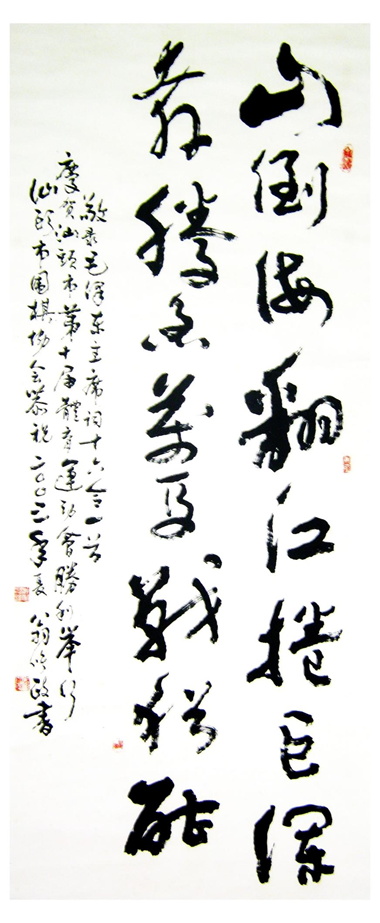 山倒海翻江捲巨瀾
奔騰急萬馬戰猶酣
敬录毛澤东主席词十六令一首
慶賀汕頭市第十届體育運动會勝利举行
汕頭市围棋协会恭祝 二〇〇三年夏 翁政書